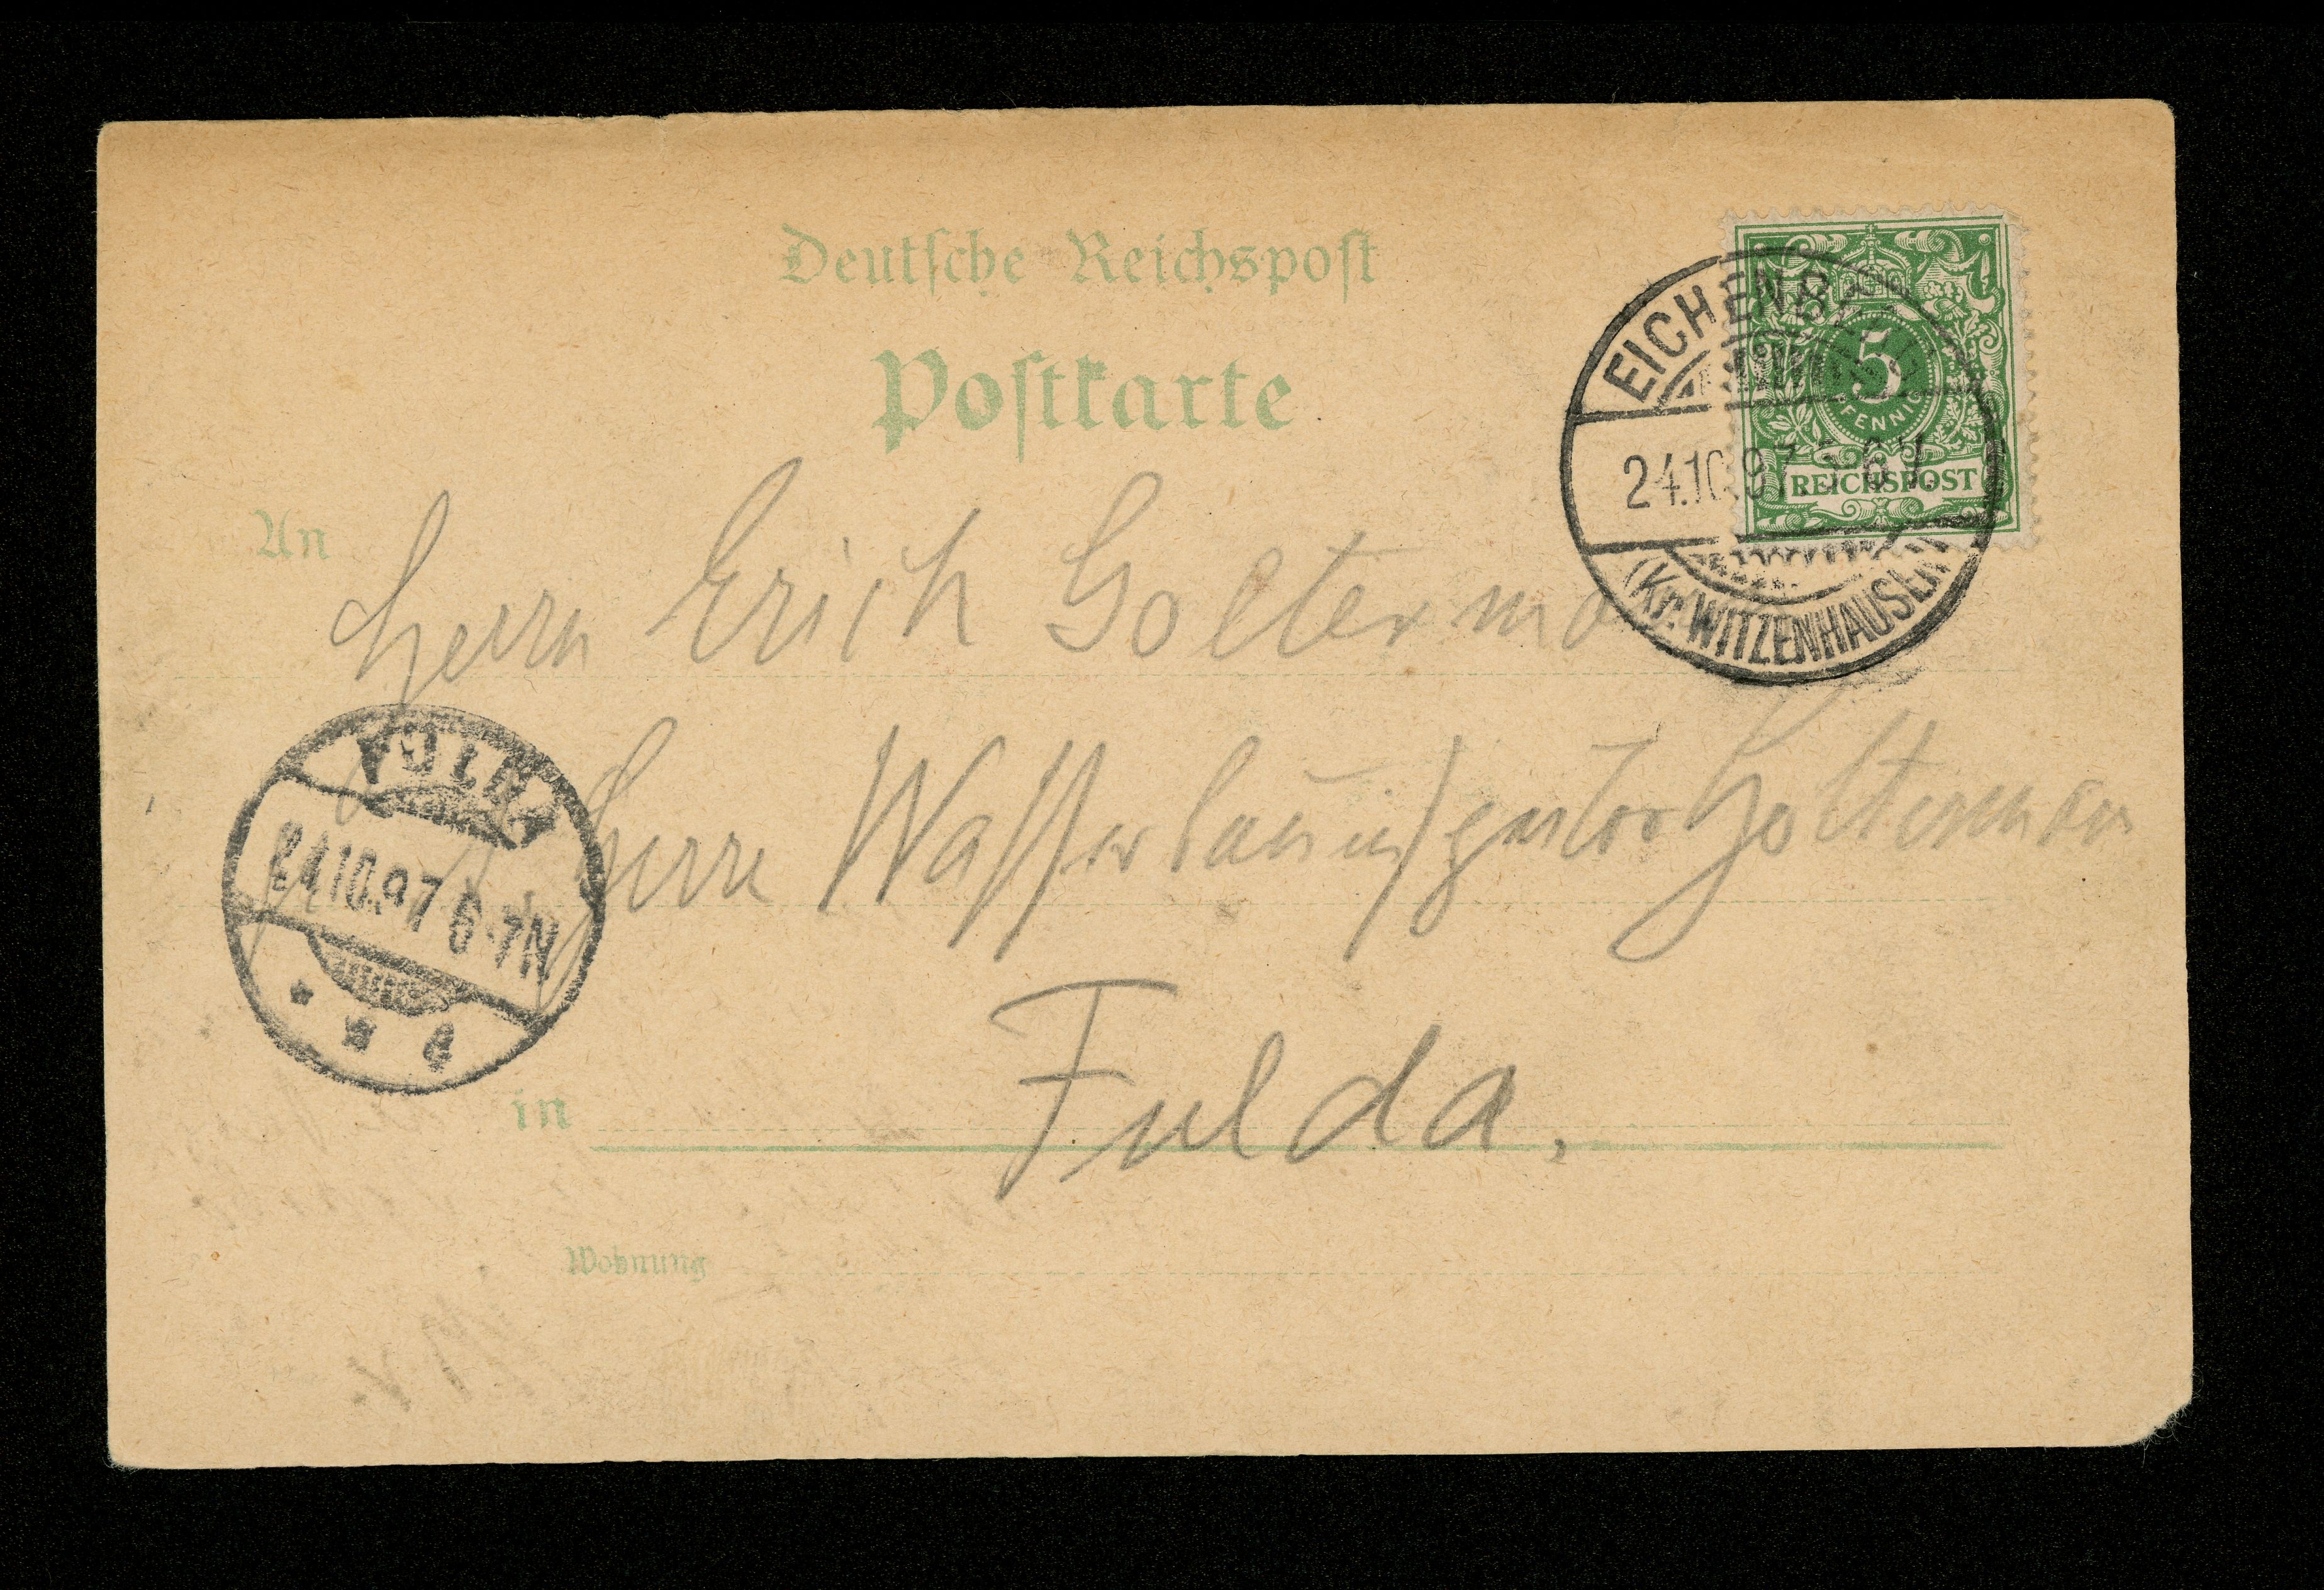 Deutsche Reichspost
Postkarte
5
PFENNIG
REICHSPOST
EICHENBE
24.10.97. 5-6 V.
(Kr. WITZENHAUSEN)
An
Herrn Erich Golterma
Herrn Wasserbauinspector Golterman
FULDA
24.10.97 6-7N
* *
in
Fulda.
Wohnung